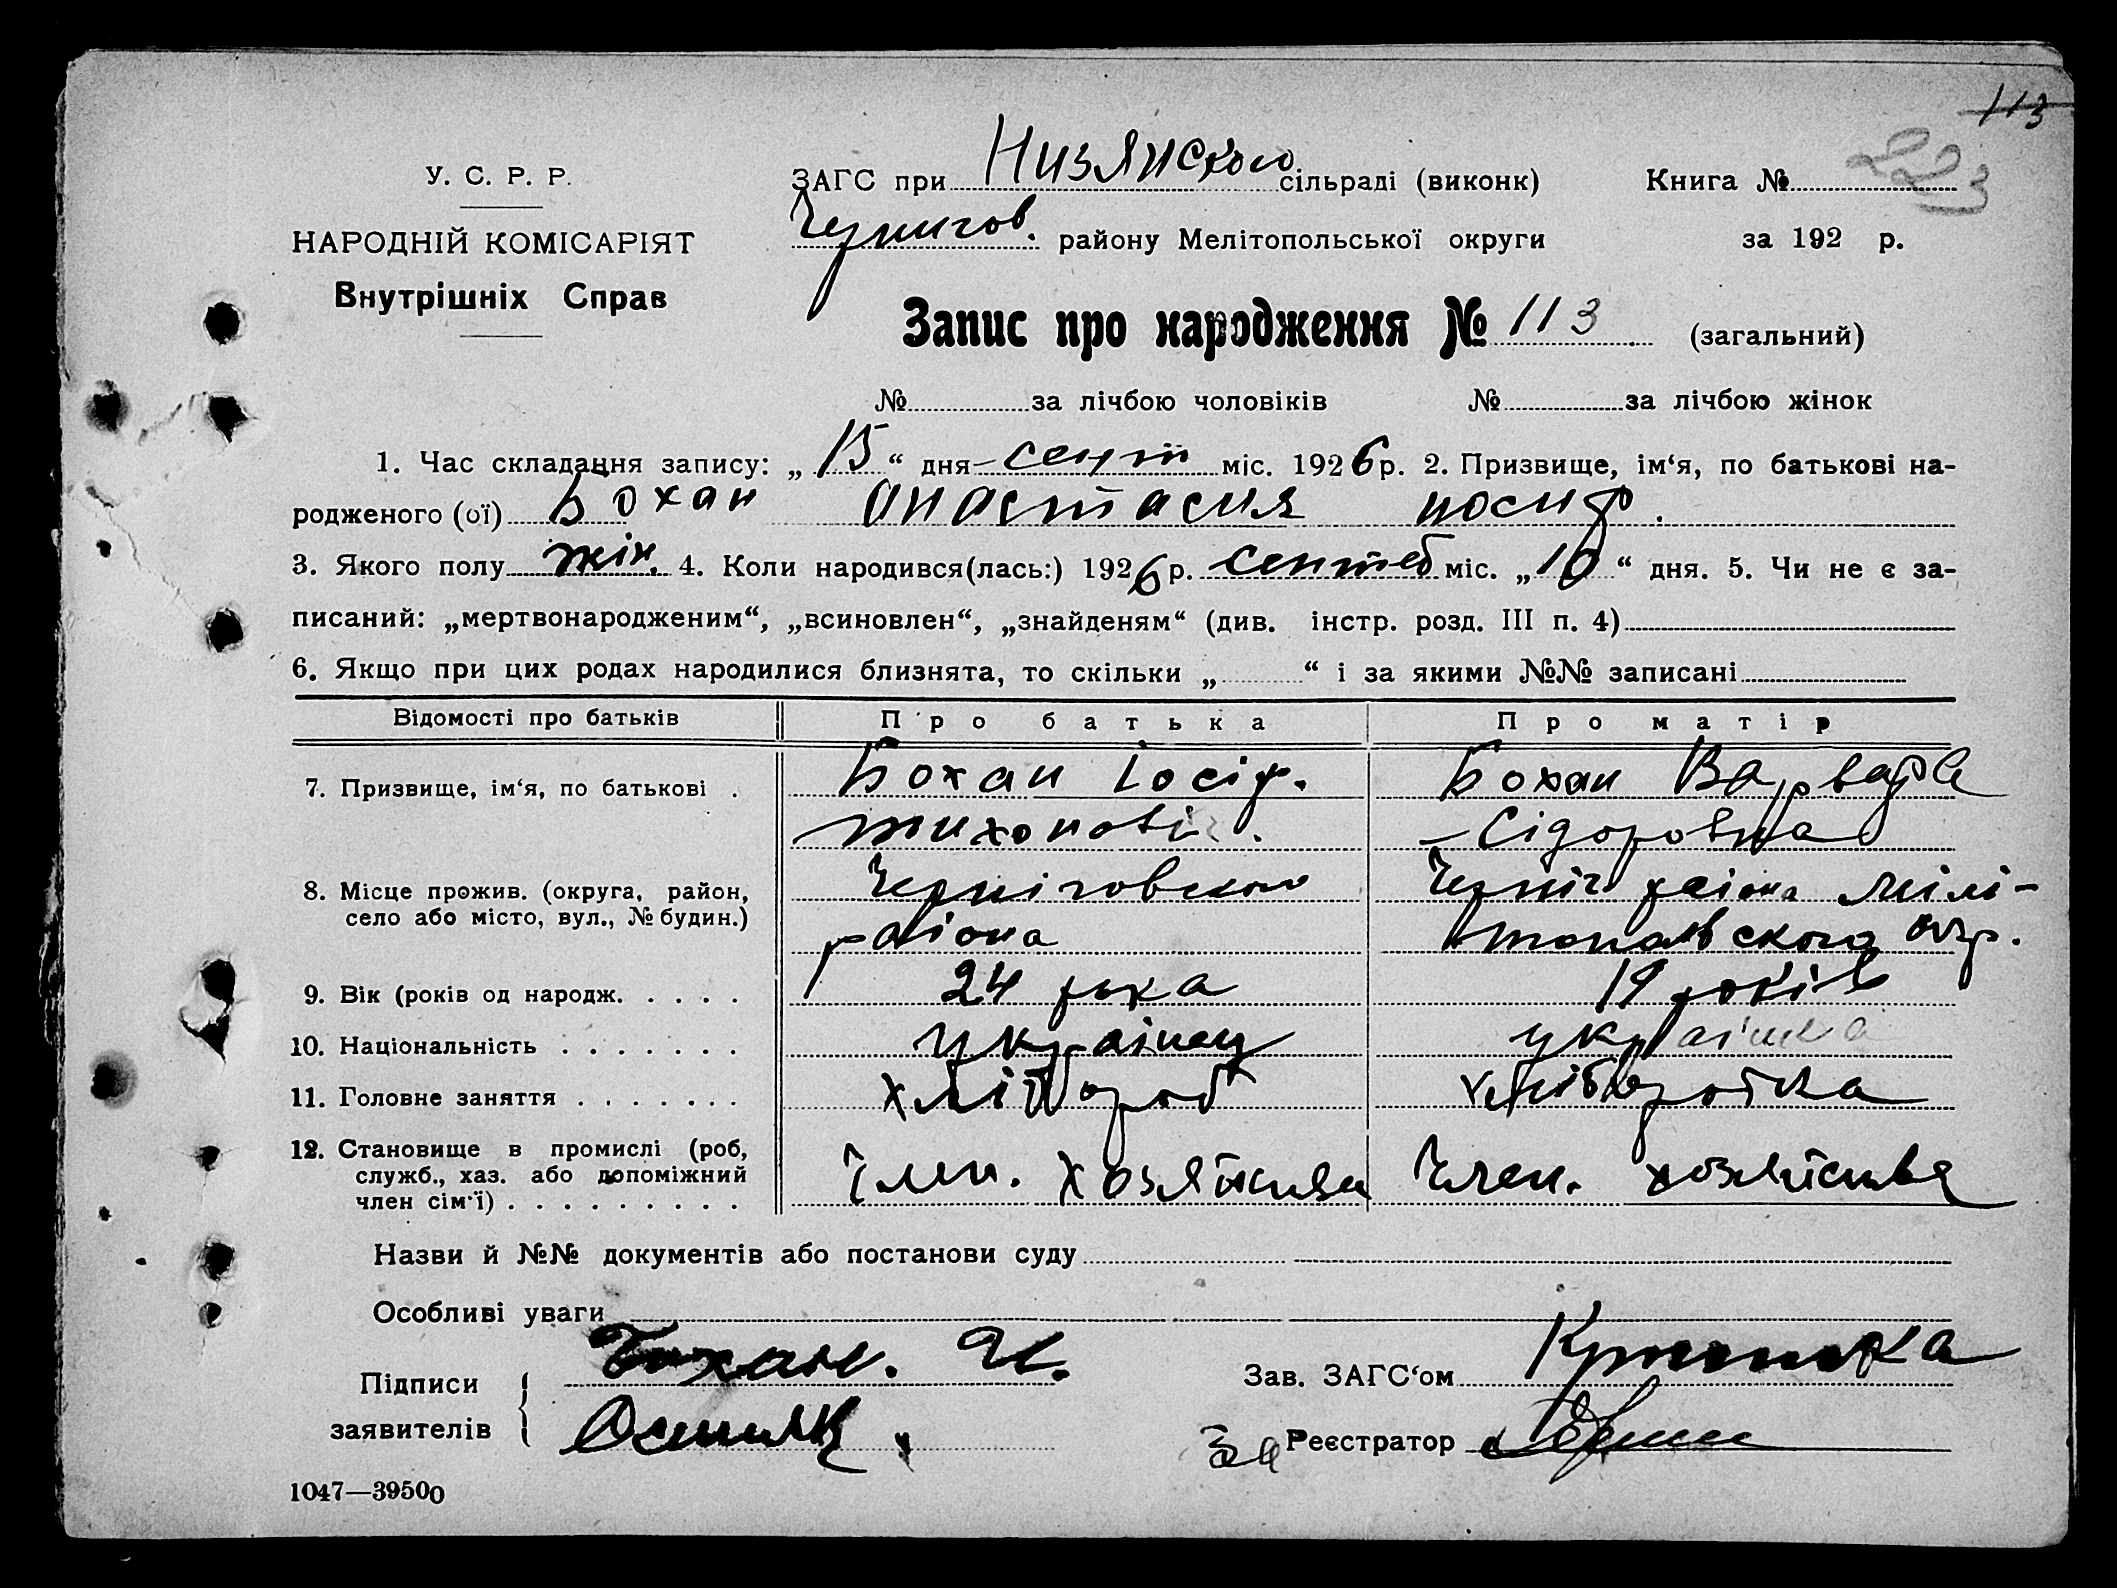 113
У. С. Р. Р.
ЗАГС при Низянского сільраді (виконк) Книга № 223
НАРОДНІЙ КОМІСАРІЯТ
Чернигов. району Мелітопольської округи за 192 р.
Внутрішніх Справ
Запис про народження № 113 (загальний)
№ за лічбою чоловіків № за лічбою жінок
1. Час складання запису: „15“ дня сент міс. 1926 р. 2. Призвище, ім‘я, по батькові на-
родженого (ої) Бохан Анастасия иосиф.
3. Якого полу жін. 4. Коли народився(лась:) 1926 р. сентеб міс. „10“ дня. 5. Чи не є за-
писаний: „мертвонародженим“, „всиновлен“, „знайденям“ (див. інстр. розд. III п. 4)
6. Якщо при цих родах народилися близнята, то скільки „ “ і за якими №№ записані
Відомості про батьків Про батька Про матір
7. Призвище, ім‘я, по батькові . Бохан Іосіф. Бохан Варвара
тихонові . Сідоровна
8. Місце прожив. (округа, район, Черніговского Черніг раіона Мілі-
село або місто, вул., № будин.) раіона топольского окр.
9. Вік (років од народж. . . . . 24 рока 19 років
10. Національність . . . . . . . українец українка
11. Головне заняття . . . . . . . хлібороб хліборобка
12. Становище в промислі (роб,
служб., хаз. або допоміжний Член. хозяйства Член. хозяйства
член сім‘ї) . . . . . . . . .
Назви й №№ документів або постанови суду
Особливі уваги
Бохан. И.
Підписи Зав. ЗАГС‘ом
заявителів За Реєстратор
1047—39500